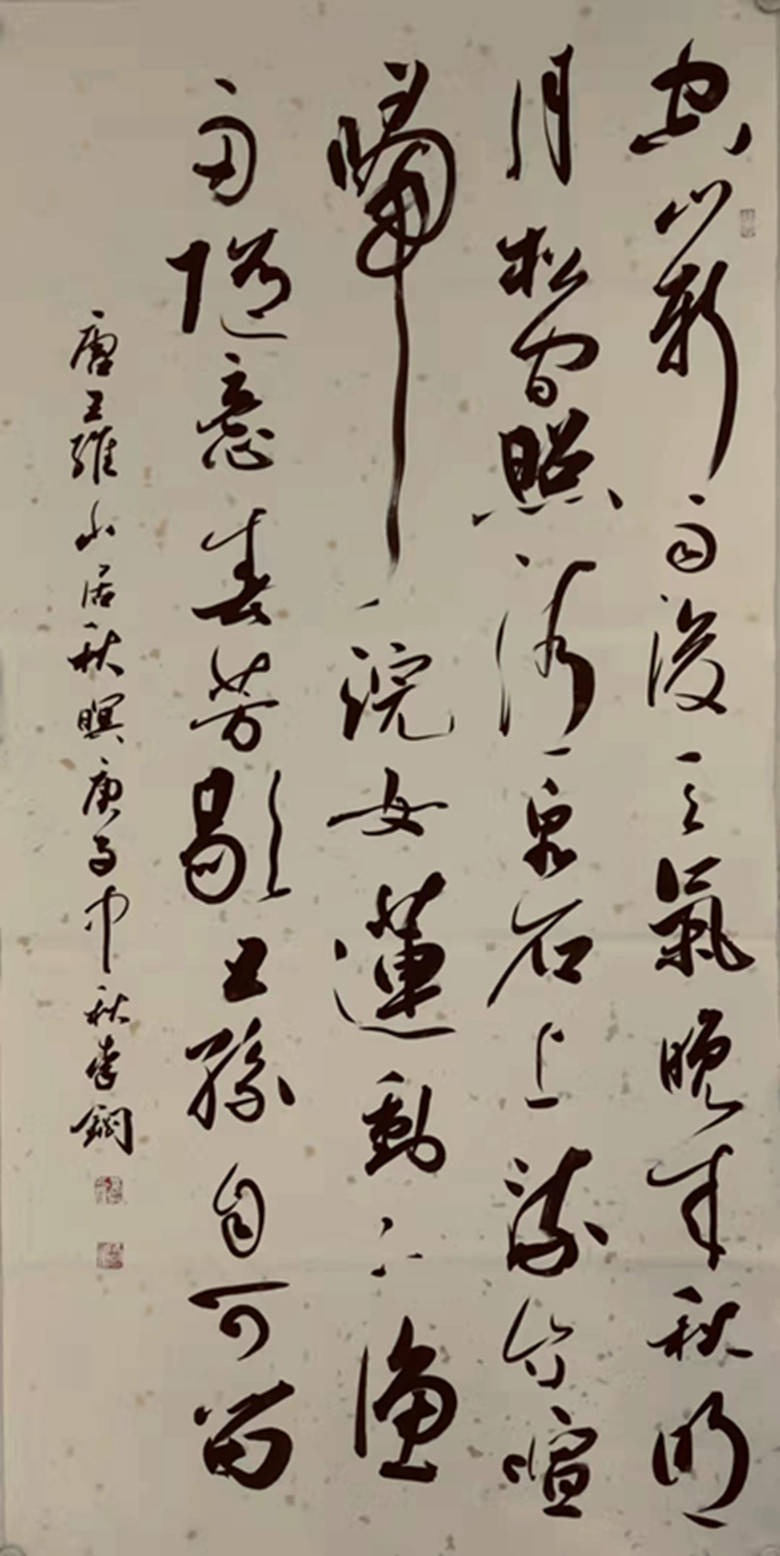 空山新雨後天氣晚来秋明
月松間照清泉石上流竹喧
歸浣女蓮動下漁
舟隨意春芳歇王孫自可留
唐王維山居秋暝庚子中秋李鋼